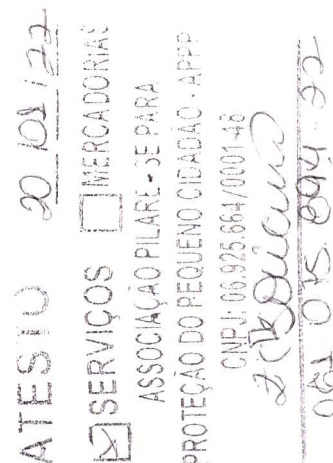 ATESTO 20 / 01 / 22
SERVIÇOS MERCADORIAS
ASSOCIAÇÃO PILARE-SE PARA
PROTEÇÃO DO PEQUENO CIDADÃO - APPP
CNPJ: 06.925.664/0001-46